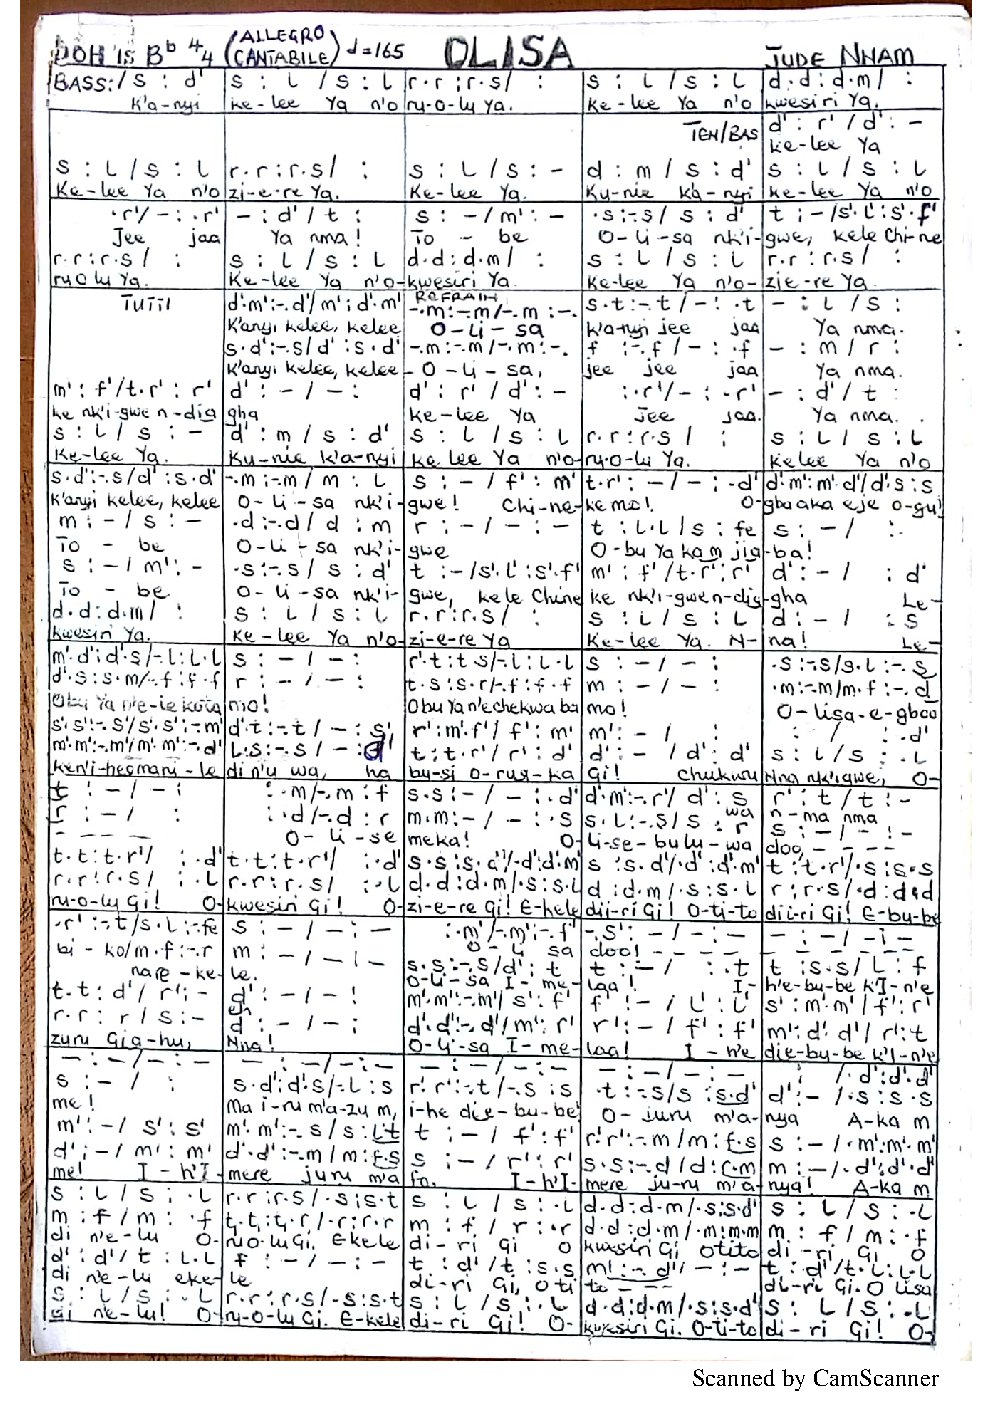 DOH IS Bb 4/4 (ALLEGRO CANTABILE) d=165 OLISA JUDE NNAM
BASS:/ s : d' | s : L / s : L | r.r : r.s / : | s : L / s : L | d.d : d.m / :
K'a-nyi | Ke-lee Ya n'o | ru-o-lu Ya. | Ke-lee Ya n'o | kwesiri Ya.
TEN/BAS | d' : r' / d' : -
Ke-lee Ya
s : L / s : L | r.r : r.s / : | s : L / s : - | d : m / s : d' | s : L / s : L
Ke-lee Ya n'o | zi-e-re Ya. | Ke-lee Ya. | Ku-nie ka-nyi | ke-lee Ya n'o
.r' / - : .r' | - : d' / t : | s : - / m' : - | .s :-.s / s : d' | t : - / s'.L' : s'.f'
Jee jaa | Ya nma! | To - be | O-li-sa nk'i- | gwe, kele Chi-ne
r.r : r.s / : | s : L / s : L | d.d : d.m / : | s : L / s : L | r.r : r.s / :
ru O lu Ya. | Ke-lee Ya n'o- | kwesiri Ya. | Ke-lee Ya n'o- | zie-re Ya.
TUTTI | d'.m' :-.d' / m' : d'.m' | REFRAIN -.m :-.m / -.m : -. | s.t :-.t / - : .t | - : L / s :
K'anyi kelee, kelee | O-li-sa | k'a-nyi jee jaa | Ya nma.
s.d' :-.s / d' : s.d' | -.m :-.m / -.m : -. | f :-.f / - : .f | - : m / r :
K'anyi kelee, kelee | O-li-sa, | jee jee jaa | Ya nma.
m' : f' / t.r' : r' | d' : - / - : | d' : r' / d' : - | : .r' / - : .r' | - : d' / t :
ke nk'i-gwe n-dig | gha | Ke-lee Ya | Jee jaa. | Ya nma.
s : L / s : - | d' : m / s : d' | s : L / s : L | r.r : r.s / : | s : L / s : L
Ke-lee Ya. | Ku-nie k'a-nyi | ke lee Ya n'o- | ru-o-lu Ya. | Kelee Ya n'o
s.d' :-.s / d' : s.d' | -.m :-.m / m : L | s : - / f' : m' | t.r' : - / - : .d' | d'.m' : m'.d' / d'.s : s
K'anyi kelee, kelee | O-li-sa nk'i- | gwe! Chi-ne- | ke mo! O- | gbaaka eje o-gu!
m : - / s : - | .d :-.d / d : m | r : - / - : - | t : L.L / s : fe | s : - / :
To - be | O-li-sa nk'i- | gwe | O-bu Ya kam jig- | ba!
s : - / m' : - | .s :-.s / s : d' | t : - / s'.L' : s'.f' | m' : f' / t.r' : r' | d' : - / : d'
To - be | O-li-sa nk'i- | gwe, kele Chine | ke nk'i-gwen-dig- | gha Le-
d.d : d.m / : | s : L / s : L | r.r : r.s / : | s : L / s : L | d : - / : s
kwesiri Ya. | Ke-lee Ya n'o- | zi-e-re Ya | Ke-lee Ya. N- | na! Le-
m'.d' : d'.s / -.L : L.L | s : - / - : | r'.t : t.s / -.L : L.L | s : - / - : | .s :-.s / s.L :-.s
d'.s : s.m / -.f : f.f | r : - / - : | t.s : s.r / -.f : f.f | m : - / - : | .m :-.m / m.f :-.d
Obu Ya n'e-le kota | mo! | Obu Ya n'echekwa ba | mo! | O-lisa-e-gboo
s'.s' :-.s' / s'.s' :-.m' | d'.t :-.t / - : s' | r' : m'.f' / f' : m' | m' : - / : | : / : .d'
m'.m' :-.m' / m'.m' :-.d' | L.s :-.s / - : d' | t : t.r' / r' : d' | d' : - / d' : d' | s : L / s : .L
ken'i-hesmani-le | di n'u wa, ha | bu-si o-rus-ka | Gi! Chukwu | Nna nk'igwe, O-
t : - / - : | : .m / -.m : f | s.s : - / - : .d' | d'.m' :-.r' / d' : s | r' : t / t : -
wa | n-ma nma
r : - / : | : .d / -.d : r | m.m : - / - : .s | s.L :-.s / s : r | s : - / - : -
O-li-se | meka! O- | li-se-bulu-wa | doo,
t.t : t.r' / : .d' | t.t : t.r' / : .d' | s.s : s.d' / .d' : d'.m' | s : s.d' / .d' : d'.m' | t : t.r' / .s : s.s
r.r : r.s / : .L | r.r : r.s / : .L | d.d : d.m / .s : s.L | d : d.m / .s : s.L | r : r.s / .d : d.d
ru-o-lu Gi! O- | kwesiri Gi! O- | zi-e-re Gi! E-kele | dii-ri Gi! O-ti-to | dii-ri Gi! E-bu-be
.r' :-.t / s.L :-.fe | s : - / - : - | : .m' / -.m' :-.f' | -.s' : - / - : - | - : - / - : -
bi-ko/m.f :-.r | m : - / - : - | O-li sa | doo!
nare-ke- | le. | s.s :-.s / d' : t | t : - / : .t | t : s.s / L : f
O-li-sa I-me- | laa! I- | h'e-bu-be k'I-n'e
t.t : d' / r' : - | d' : - / - : | m'.m' :-.m' / s' : f' | f' : - / L' : L' | s' : m'.m' / f' : r'
eh
r.r : r / s : - | d : - / - : | d'.d' :-.d' / m' : r' | r' : - / f' : f' | m' : d'.d' / r' : t
zuru Gig-hu, | Nna! | O-li-sa I-me- | laa! I-h'e | die-bu-be k'I-n'e
- : - / - : - | - : - / - : - | - : - / - : - | - : - / - : - | : / .d' : d'.d'
s : - / : | s.d' : d'.s / -.L : s | r'.r' :-.t / -.s : s | .t :-.s / s : s.d' | d' : - / .s : s.s
me! | Ma i-ru m'a-zu m, | i-he die-bu-be! | O-juru m'a- | nya A-ka m
m' : - / s' : s' | m'.m' :-.s / s : L.t | t : - / f' : f' | r'.r' :-.m / m : f.s | s : - / .m' : m'.m'
d' : - / m' : m' | d'.d' :-.m / m : f.s | s : - / r' : r' | s.s :-.d / d : r.m | m : - / .d' : d'.d'
me! I-h'I- | mere juru m'a | fo. I-h'I- | mere ju-ru m'a- | nya! A-ka m
s : L / s : .L | r.r : r.s / .s : s.t | s : L / s : .L | d.d : d.m / .s : s.d' | s : L / s : .L
m : f / m : .f | t.t : t.r / .r : r.r | m : f / r : .r | d.d : d.m / .m : m.m | m : f / m : .f
di n'e-lu O- | ru O lu Gi. Ekele | di-ri Gi O | kwesiri Gi Otito | di-ri Gi O
d' : d' / t : L.L | f : - / - : - | t : d' / t : s.s | m' : -.d' / - : - | t : d' / t.L : L.L
di n'e-lu eke- | le | di-ri Gi, O ti | to | di-ri Gi. O lisa
s : L / s : .L | r.r : r.s / .s : s.t | s : L / s : .L | d.d : d.m / .s : s.d' | s : L / s : .L
si n'e-lu! O- | ru-o-lu Gi. E-kele | di-ri Gi! O- | kwesiri Gi. O-ti-to | di-ri Gi! O-
Scanned by CamScanner